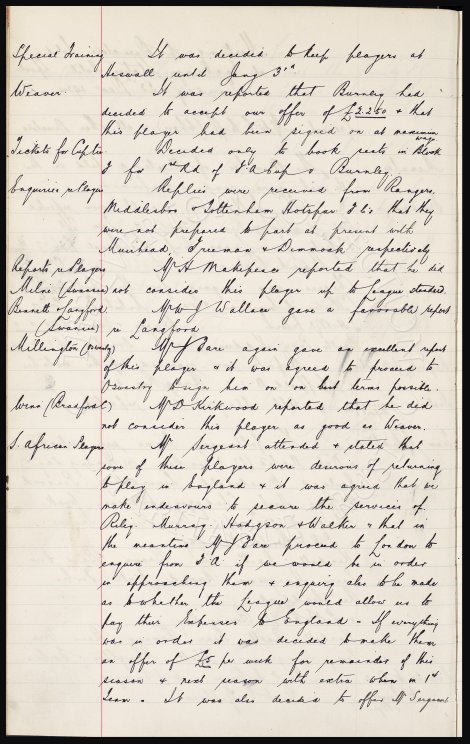 Special Training It was decided to keep players at
Heswall until Jany 3rd
Weaver. It was reported that Burnley had
decided to accept our offer of £2250 & that
this player had been signed on at maximum
wage
Tickets for Cup tie Decided only to book seats in Block
J for 1st Rd of F.A Cup v Burnley
Enquiries re Players Replies were received from Rangers.
Middlesbro & Tottenham Hotspur F C's that they
were not prepared to part at present with
Muirhead, Freeman & Dimmock respectively
Reports re Players Mr H Makepeace reported that he did
Milne (Swansea) not consider this player up to League standard.
Bennett & Langford. Mr W J Wallace gave a favorable report
(Swansea) re Langford
Millington (Oswestry) Mr J Dare again gave an excellent report
of this player & it was agreed to proceed to
Oswestry & sign him on on best terms possible.
Wins (Bradford) Mr D Kirkwood reported that he did
not consider this player as good as Weaver.
S. African Players Mr Sergeant attended & stated that
some of these players were desirous of returning
to play in England & it was agreed that we
make endeavours to secure the services of.
Riley Murray. Hodgson & Walker & that in
the meantime Mr J Dare proceed to London to
enquire from F A if we would be in order
in approaching them & enquiry also to be made
as to whether the League would allow us to
pay their expenses to England - If everything
was in order it was decided to make them
an offer of £5 per week for remainder of this
season & next season with extra when in 1st
team - It was also decided to offer Mr Sergeant